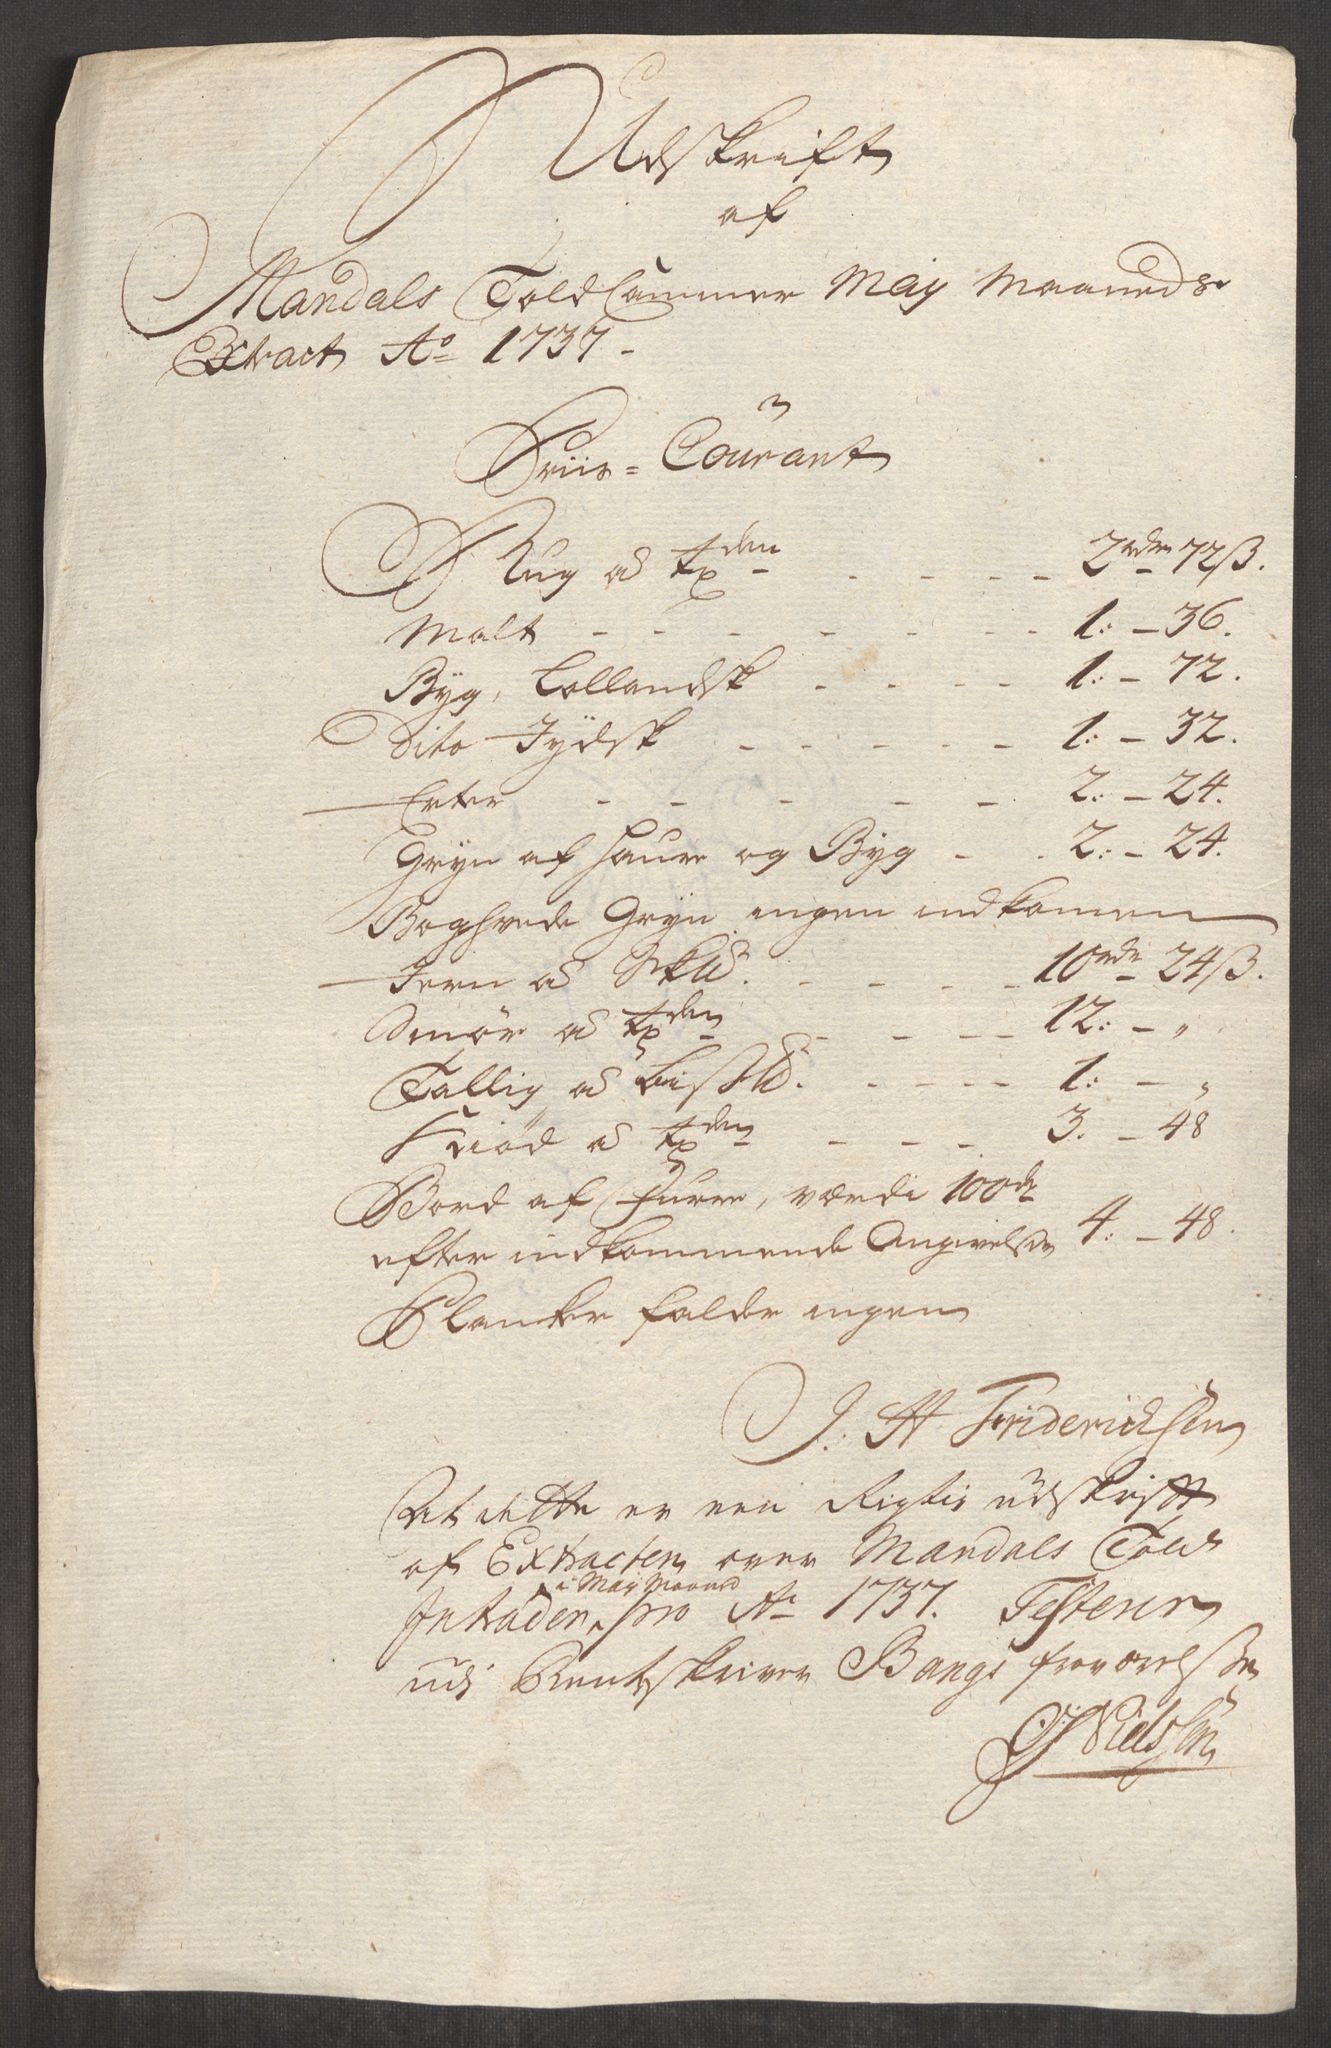 Udskrift
af
Mandals Told Cammer May Maaneds
Extract Ao 1737 -
Priis = Courant
Rug a Tønden - - - - 2 rdr 72 ß.
Malt - - - - - - - 1: - 36.
Byg, Lollandsk - - - - 1: - 72.
Dito Jydsk - - - - - 1: - 32.
Erter - - - - - 2: - 24.
Gryn af Haure og Byg - - 2: - 24.
Boghvede Gryn ingen indkommen
Jern a Sk℔. - - - - 10 rdr 24 ß.
Smør a Tønden - - - - 12: - „
Tallig a Bis℔. - - - - 1: - „
Kiød a Tønden - - - 3. - 48
Bord af Furre, værdi 100de
efter indkommende Angivelse 4. - 48.
Planker falder ingen
J: H Fridericksen
At dette er een Rigtig udskrifft
af Extracten over Mandals Told
i May Maaned
Intrader, pro Ao 1737. Testerer
udj Rentskriver Bangs fraværelse
Nielssen